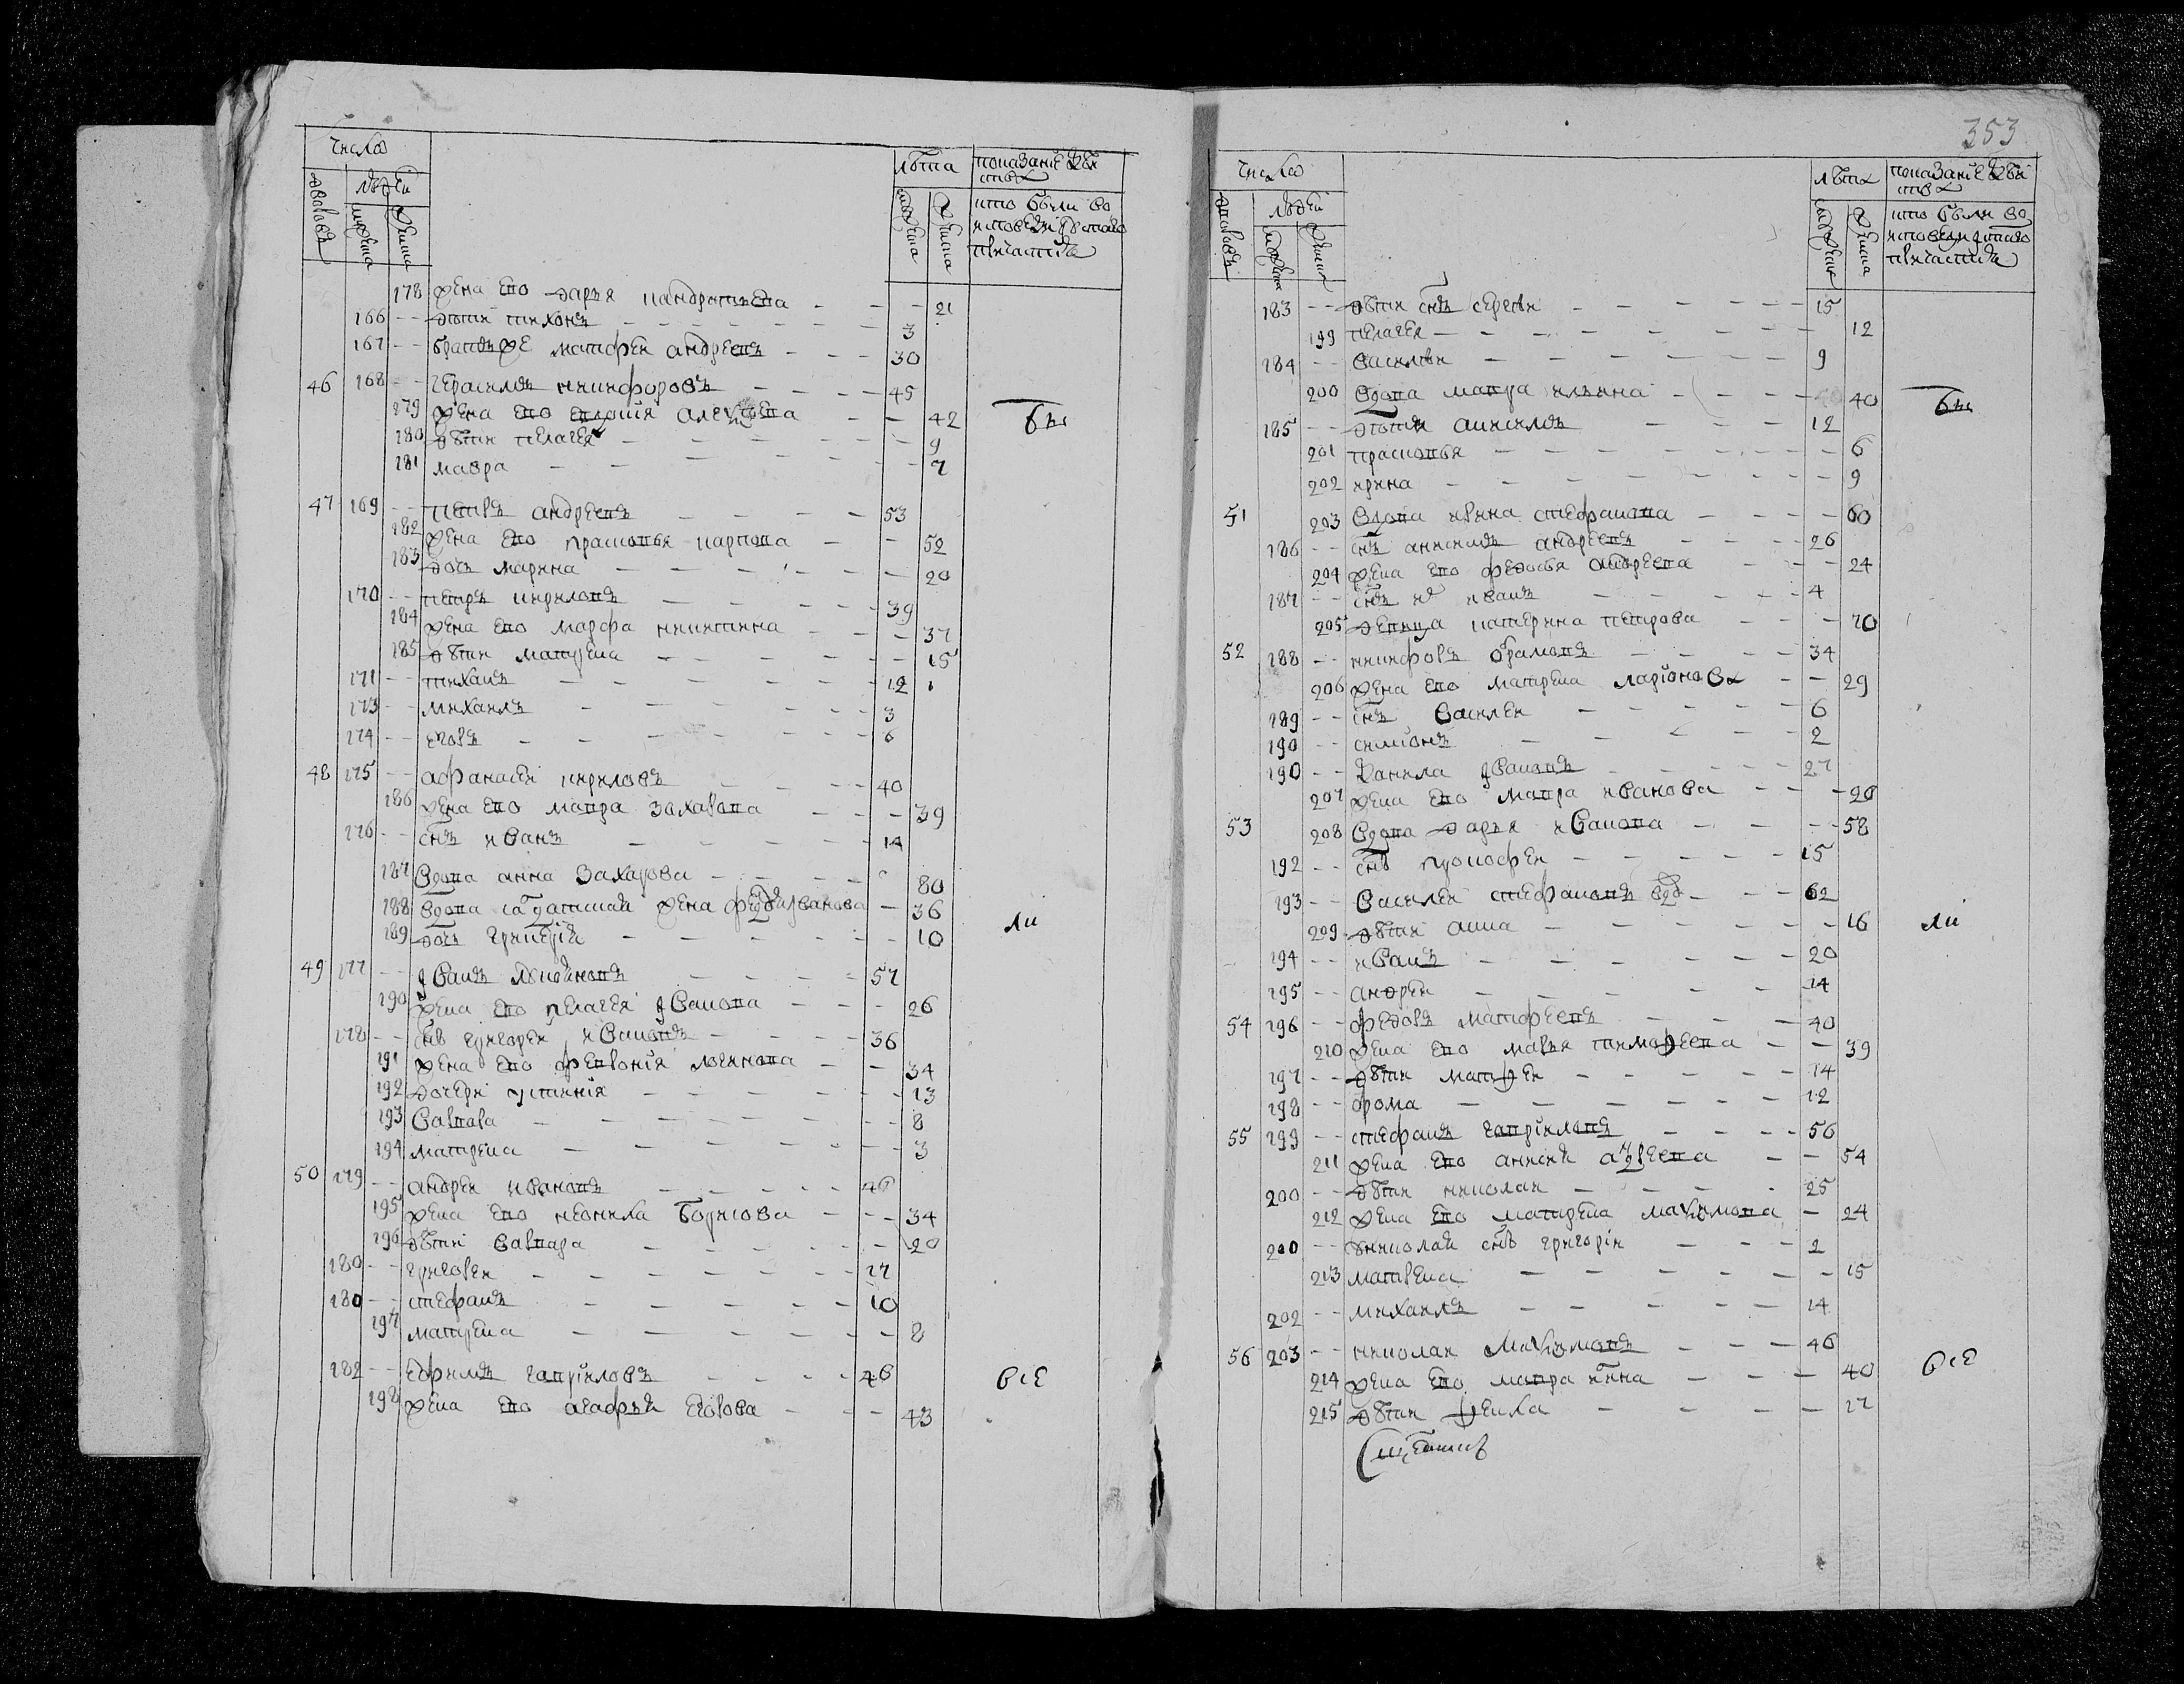 число
людей
дворовъ
мужеска
женска
лѣта
мужеска
женска
показаніе дѣйства
кто были во исповеди и святаго причастія
178 жена ево дарья кандратьева - - - 21
166 - - дѣти тихонъ - - - 3
167 - - братъ же матфей андреевъ - - - 30
46 168 - - герасимъ никифоровъ - - - 45
179 жена ево авдотія алексѣева - - 42
180 дѣти пелагея - - - 9
181 мавра - - - 7
бы
47 169 - - петръ андреевъ - - - 53
182 жена ево прасковья карпова - - 52
183 дочь марина - - - 20
170 - - петръ кириловъ - - - 39
184 жена ево марфа никитина - - - 37
185 дѣти матрена - - - 15
171 - - тиханъ - - - 12
173 - - михаилъ - - - 3
174 - - егоръ - - - 6
48 175 - - афанасей кириловъ - - - 40
186 жена ево мавра захарова - - - 39
176 - - снъ иванъ - - - 14
187 вдова анна захарова - - - 80
188 вдова салдатская жена иванова - 36
189 дочь - - - 10
ли
49 177 - - иванъ логиновъ - - - 57
190 жена ево пелагея иванова - - - 26
178 - - снъ григорей ивановъ - - - 36
191 жена ево февронія логинова - - 34
192 дочери устинія - - - 13
193 варвара - - - 8
194 матрена - - - 3
50 179 - - андрей ивановъ - - - 40
195 жена ево неонила борисова - - - 34
196 дѣти варвара - - - 20
180 - - григорей - - - 17
180 - - стефанъ - - - 10
197 матрена - - - 8
182 - - ефимъ гавриловъ - - - 46
198 жена ево агафья егорова - - - 43
всѣ
353
число
людей
дворовъ
мужеска
женска
лѣта
мужеска
женска
показаніе дѣйства
кто были во исповеди и святаго причастія
183 - - дѣти снъ сергѣй - - - 15
199 пелагея - - - 12
184 - - василѣй - - - 9
200 вдова мавра ильина - - - 40
бы
185 - - дѣти анисимъ - - - 12
201 прасковья - - - 6
202 ирина - - - 9
51 203 вдова ирина стефанова - - - 60
186 - - снъ анисимъ андреевъ - - - 26
204 жена ево федосья андреева - - - 24
187 - - снъ их иванъ - - - 4
205 девица катерина петрова - - - 70
52 188 - - никифоръ абрамовъ - - - 34
206 жена ево матрена ларіонова - - 29
189 - - снъ василей - - - 6
190 - - симіонъ - - - 2
190 - - данила ивановъ - - - 27
207 жена ево мавра иванова - - - 20
53 208 вдова дарья иванова - - - 58
192 - - снъ прокофей - - - 15
193 - - василей стефановъ вдв - - - 62
209 дѣти анна - - - 16
ли
194 - - иванъ - - - 20
195 - - андрей - - - 14
54 196 - - федоръ матфеевъ - - - 40
210 жена ево марья тимофеева - - 39
197 - - дѣти матфей - - - 14
198 - - фома - - - 12
55 199 - - стефанъ гавріиловъ - - - 56
211 жена ево анисья андреева - - 54
200 - - дѣти николай - - - 25
212 жена ево матрена максимова - 24
200 - - николай снъ григорій - - - 2
213 матрена - - - 15
202 - - михаилъ - - - 14
56 203 - - николай максимовъ - - - 46
214 жена ево мавра - - - 40
всѣ
215 дѣти фекла - - - 17